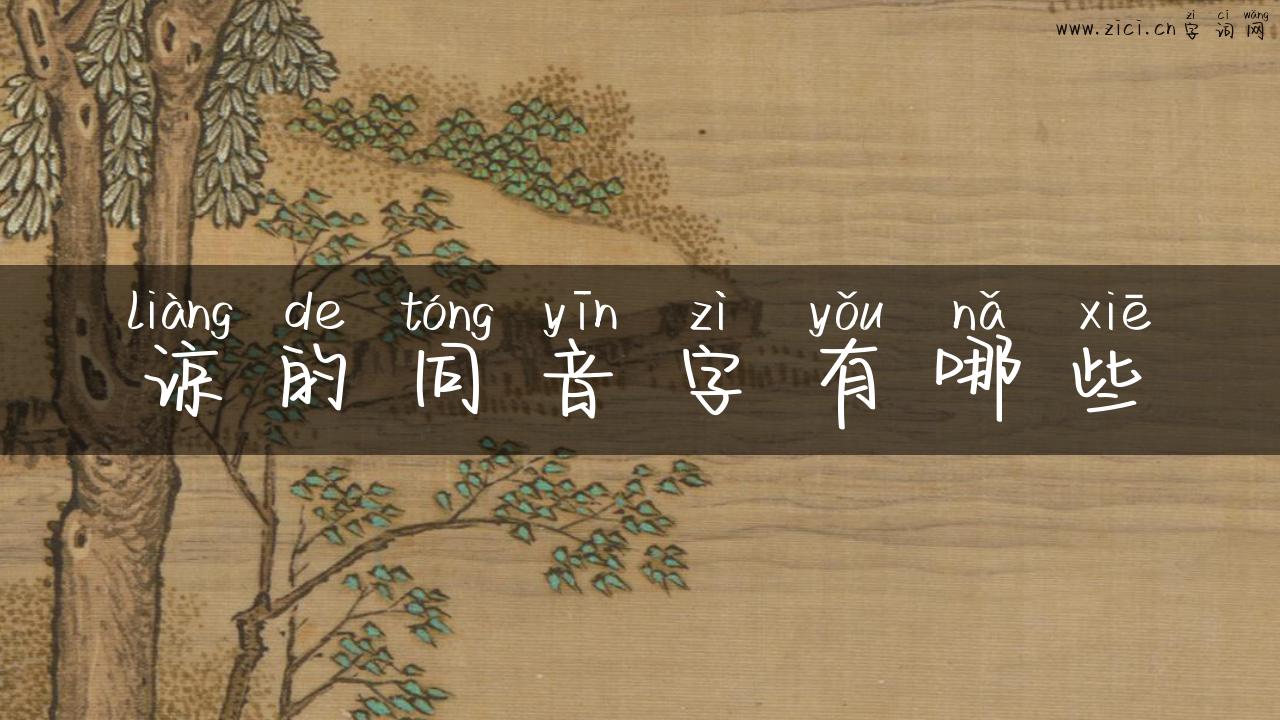 zì cí wǎng
www.zici.cn 字词网
liàng de tóng yīn zì yǒu nǎ xiē
谅的同音字有哪些